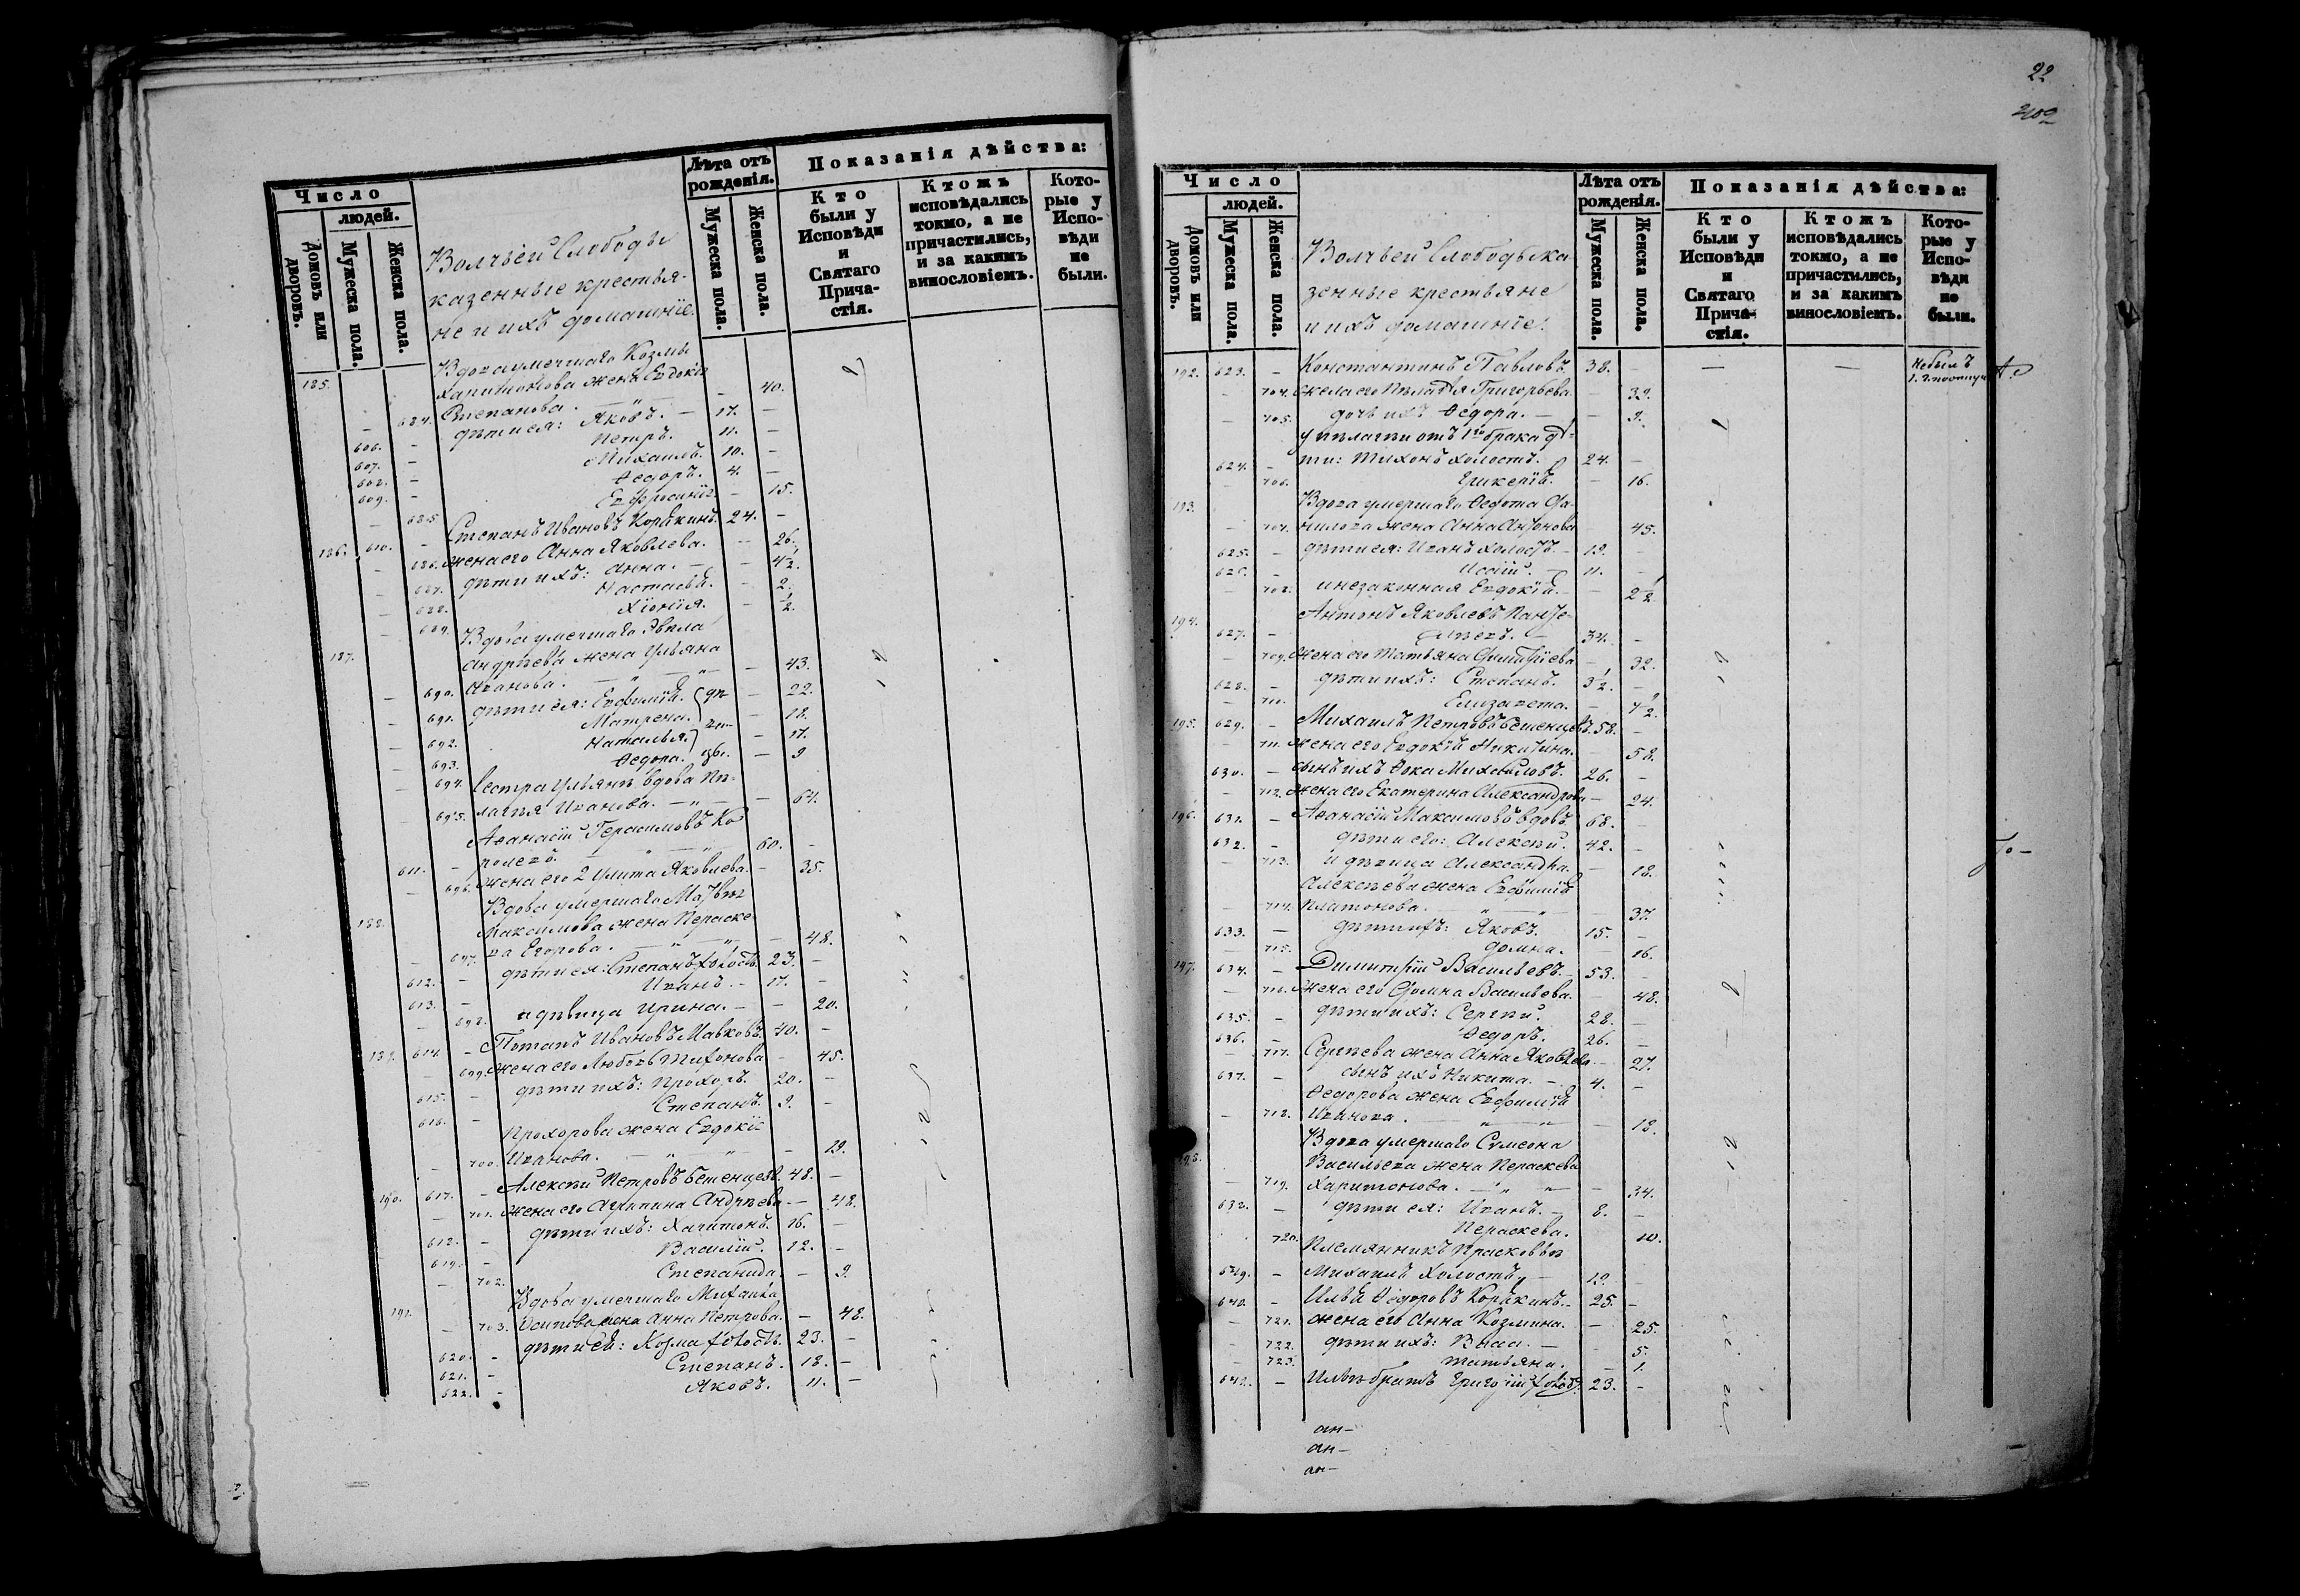 Число
людей.
Домовъ или дворовъ.
Мужеска пола.
Женска пола.
Волчьей Слободы
казенные крестья-
не и ихъ домашніе.
Лѣта отъ рожденія.
Мужеска пола.
Женска пола.
Показанія дѣйства:
Кто были у Исповѣди и Святаго Прича-стія.
Ктожъ исповѣдались токмо, а не причастились, и за какимъ винословіемъ.
Кото-рые у Испо-вѣди не были.
185. Вдова умершаго Козмы
Харитонова жена Евдокія
684. Степанова. 40.
606. дѣти ея: Яковъ. 17.
607. Петръ. 11.
608. Михаилъ. 10.
609. Ѳедоръ. 4.
685 Евфросинія 15.
186. 610. Степанъ Ивановъ Корякинъ. 24.
686. жена его Анна Яковлева. 26.
687. дѣти ихъ: Анна. 4½.
688. Настасья. 2.
689. Хіонія. ½.
187. Вдова умершаго
Андрѣева жена Ульяна
690. Иванова. 43.
691. дѣти ея: Евфимія. 22.
692. Матрена. 18.
693. Наталья. 17.
694. Ѳедора. 9
Сестра Ульянѣ вдова Пе-
695. лагея Иванова. 67.
Аѳанасій Герасимовъ Ко
611. 60.
696. жена его 2 Улита Яковлева. 35.
188. Вдова умершаго Матвѣя
Максимова жена Параске
697. ва Егорова. 48.
612. дѣти ея: Степанъ холостъ. 23.
613. Иванъ. 17.
698. и дѣвица Ирина. 20.
189. 614. Потапъ Ивановъ Мавковъ. 40.
699. жена его Любовь Тихонова 45.
615. дѣти ихъ: Прохоръ. 20.
616. Степанъ. 9.
Прохорова жена Евдокія
700. Иванова. 19.
190. 617. Алексѣй Петровъ Бешенцевъ. 48.
701. жена его Агрипина Андрѣева 48.
618. дѣти ихъ: Харитонъ. 16.
619. Василій. 12.
702. Степанида. 9.
191. Вдова умершаго Михаила
703. Осипова жена Анна Петрова. 48.
620. дѣти ея: Козма холостъ. 23.
621. Степанъ. 18.
622. Яковъ. 11.
22
402
Число
людей.
Домовъ или дворовъ.
Мужеска пола.
Женска пола.
Волчьей Слободы ка
зенные крестьяне
и ихъ домашніе.
Лѣта отъ рожденія.
Мужеска пола.
Женска пола.
Показанія дѣйства:
Кто были у Исповѣди и Святаго Прича-стія.
Ктожъ исповѣдались токмо, а не причастились, и за какимъ винословіемъ.
Кото-рые у Испо-вѣди не были.
192. 623. Константинъ Павловъ. 38. Небылъ
704. жена его Пелагея Григорьева 39.
705. дочь ихъ Ѳедора. 9.
У Пелагеи отъ 1го брака дѣ-
624. ти: Тихонъ холостъ. 24.
706. Гликерія. 16.
193. Вдова умершаго Ѳедота Да-
707. нилова жена Анна Антонова 45.
625. дѣти ея: Иванъ холостъ. 19.
626. 11.
708. и незаконная Евдокія. 2½
194. Антонъ Яковлевъ Панте-
627. 34.
709. жена его Татьяна Димитріева 32.
628. дѣти ихъ: Степанъ. 3½.
710. Елизавета. ½.
195. 629. Михаилъ Петровъ Бешенцевъ. 58.
711. жена его Евдокія Никитина. 58.
630. сынъ ихъ Ѳока Михайловъ. 26.
712. жена его Екатерина Александрова 24.
196. 631. Аѳанасій Максимовъ вдовъ. 68.
632. дѣти его: Алексѣй. 42.
713. и дѣвица Александра. 18.
Алексѣева жена Евфимія
714. Платонова. 37.
633. дѣти ихъ: Яковъ. 15.
715. Домна. 16.
197. 634. Димитрій Васильевъ. 53.
716. жена его Домна Васильева. 48.
635. дѣти ихъ: Сергѣй. 28.
636. Ѳедоръ. 26.
717. Сергѣева жена Анна Яковлева 27.
637. сынъ ихъ Никита. 4.
Ѳедорова жена Евфимія
718. Иванова. 18.
198. Вдова умершаго Симеона
Васильева жена Параскева
719. Харитонова. 34.
638. дѣти ея: Иванъ. 8.
720. Параскева. 10.
Племянникъ Прасковьи
639. Михаилъ холостъ 19.
640. Илья Ѳедоровъ Корякинъ. 25.
721. жена его Анна Козмина. 25.
722. дѣти ихъ: Васса. 5.
723. Татьяна. 1.
641. Ильѣ братъ Григорій холостъ. 23.
ан-
ан-
ан-